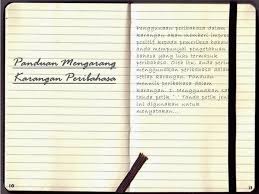 Panduan Mengarang
Karangan Peribahasa
Penggunaan peribahasa dalam
karangan akan memberi impresi
positif kepada pemeriksa bahawa
anda mempunyai pengetahuan
bahasa yang luas termasuk
peribahasa. Oleh itu, anda perlu
menggunakan peribahasa dalam
setiap karangan. Panduan
menulis peribahasa dalam
karangan: 1. Menggunakan
tanda petik '...' Tanda petik
ini digunakan untuk
menyatakan...
10